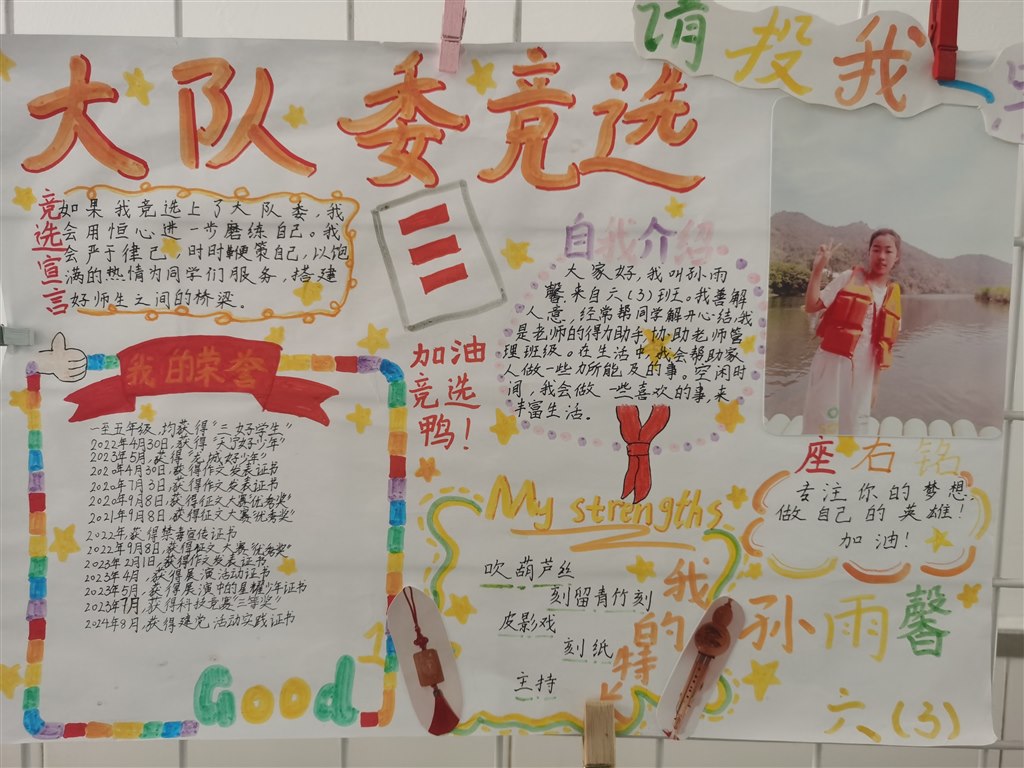 请投我
大队委竞选
竞选宣言
如果我竞选上了大队委,我
会用恒心进一步磨练自己。我
会严于律己,时时鞭策自己,以饱
满的热情为同学们服务,搭建
好师生之间的桥梁。
三
加油
竞选
鸭!
自我介绍
大家好,我叫孙雨
馨,来自六(3)班。我善解
人意,经常帮同学解开心结,我
是老师的得力助手,协助老师管
理班级。在生活中,我会帮助家
人做一些力所能及的事,空闲时
间,我会做一些喜欢的事,来
丰富生活。
我的荣誉
一至五年级,均获得“三好学生”
2022年4月30日,获得“天宁好少年”
2023年5月,获得“龙城好少年”
2020年4月30日,获得作文发表证书
2020年7月3日,获得作文发表证书
2020年9月8日,获得征文大赛“优秀奖”
2021年9月8日,获得征文大赛“优秀奖”
2022年,获得禁毒宣传证书
2022年9月8日,获得征文大赛“优秀奖”
2023年2月1日,获得作文发表证书
2023年4月,获得展演活动证书
2023年5月,获得展演中的星耀少年证书
2023年7月,获得科技竞赛“三等奖”
2024年8月,获得建党活动实践证书
Good
My strengths
我的特长
吹葫芦丝
刻留青竹刻
皮影戏
刻纸
主持
座右铭
专注你的梦想,
做自己的英雄!
加油!
孙雨馨
六(3)